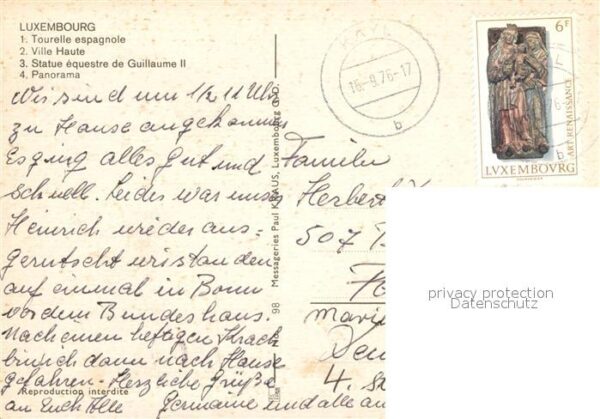 LUXEMBOURG
1. Tourelle espagnole
2. Ville Haute
3. Statue équestre de Guillaume II
4. Panorama
Wir sind um 1/2 11 Uhr
zu Hause angekommen
Es ging alles gut und
schnell. Leider war unser
Heinrich wieder aus-
gerutscht wir standen
auf einmal in Bonn
vor dem Bundeshaus.
Nach einem heftigen Krach
bin ich dann nach Hause
gefahren - Herzliche Grüße
an Euch Alle Germaine und alle an
Reproduction interdite
98 Messageries Paul KRAUS, Luxembourg
16-8.76-17
b
6F
ART RENAISSANCE
LUXEMBOURG
b
Familie
Herbert
507
4.
privacy protection
Datenschutz